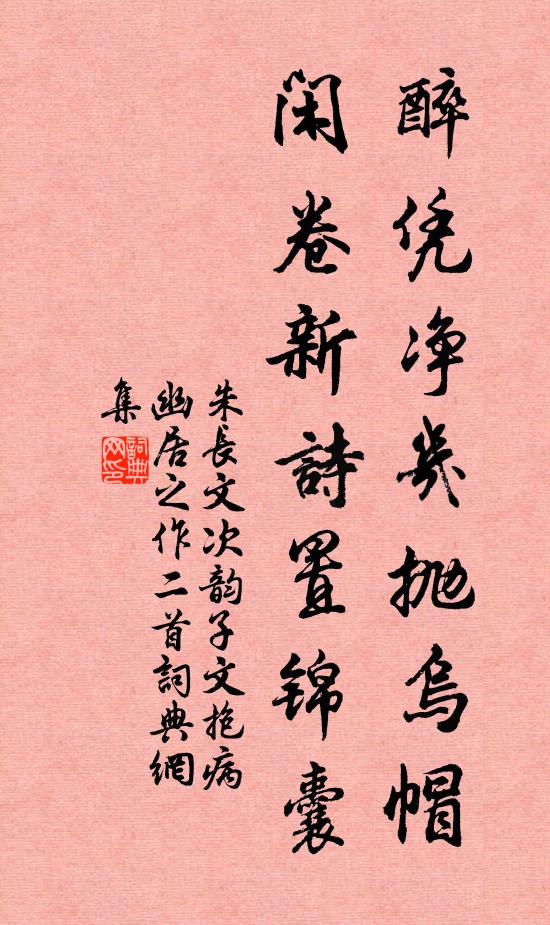 醉凭净几抛乌帽
闲卷新詩置锦囊
朱長文次韵子文抱病
幽居之作二首詞典網
集
詞典网印